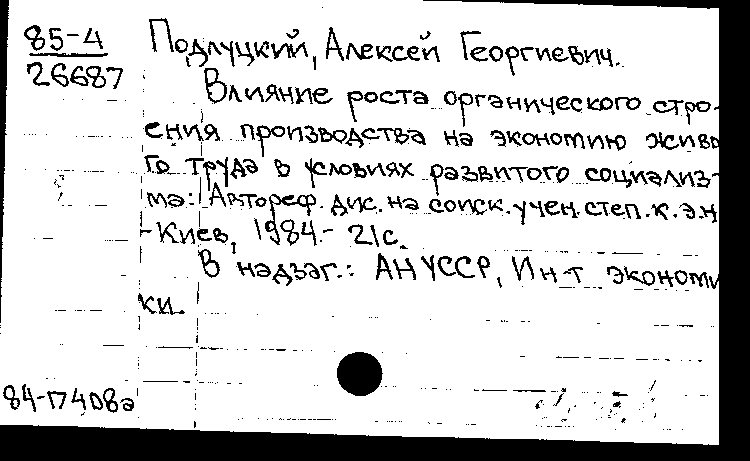 85-4
26687
Подлуцкий, Алексей Георгиевич.
Влияние роста органического стро-
ения производства на экономию живо
го труда в условиях развитого социализ-
ма: Автореф. дис. на соиск. учен. степ. к. э. н
- Киев, 1984. - 21 с.
В надзаг.: АН УССР, Ин-т экономи
ки.
84-17408а